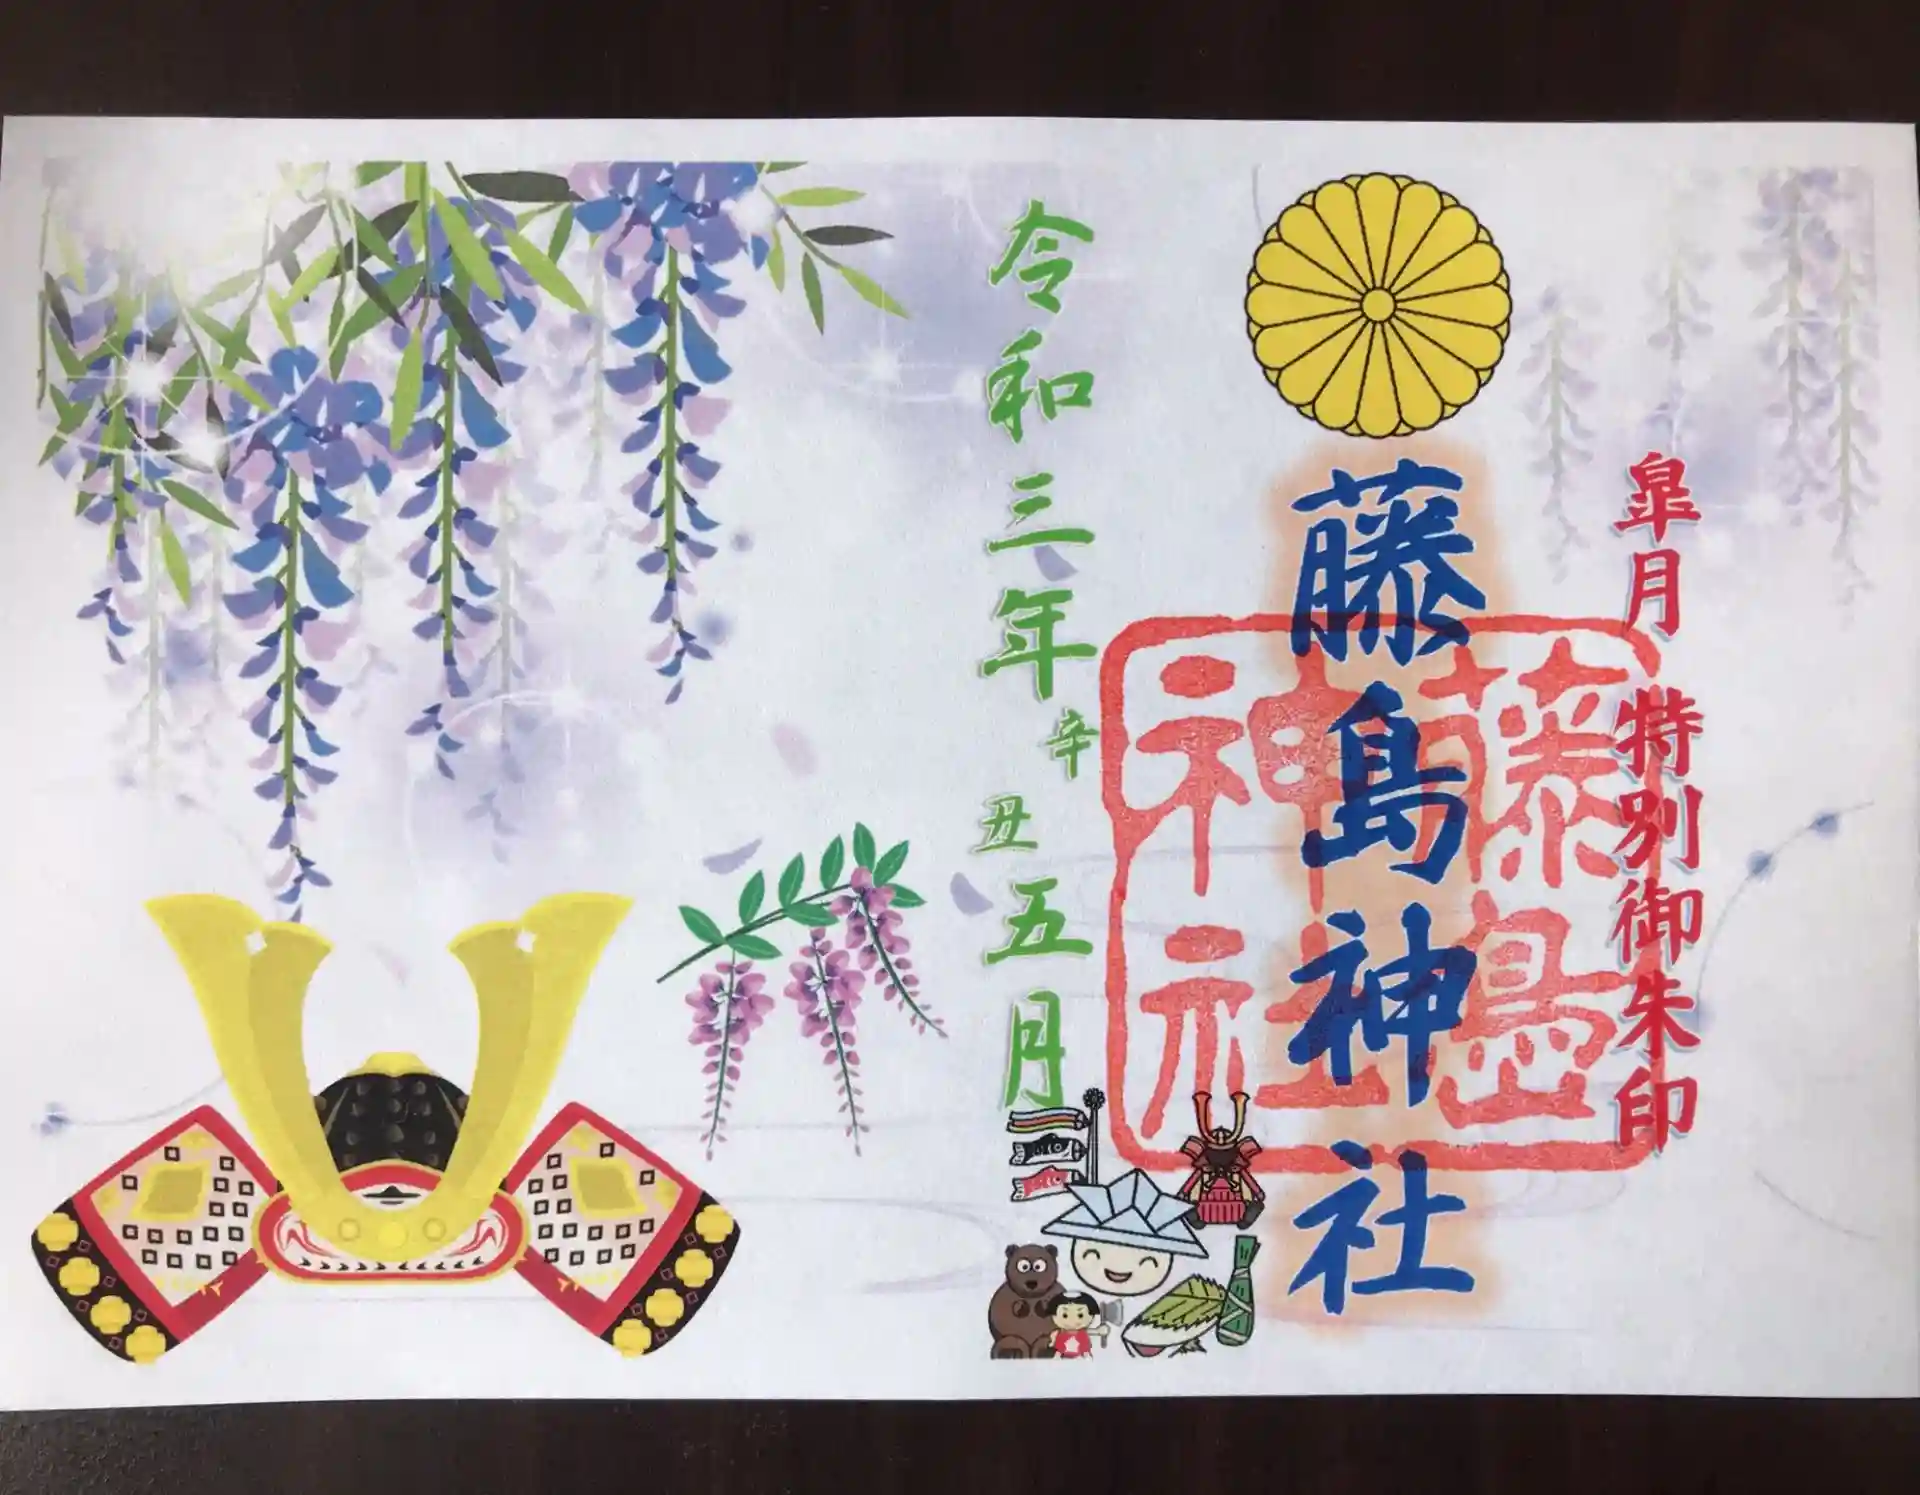 皐月 特別御朱印
藤島神社
藤島
神社
令和三年辛丑五月